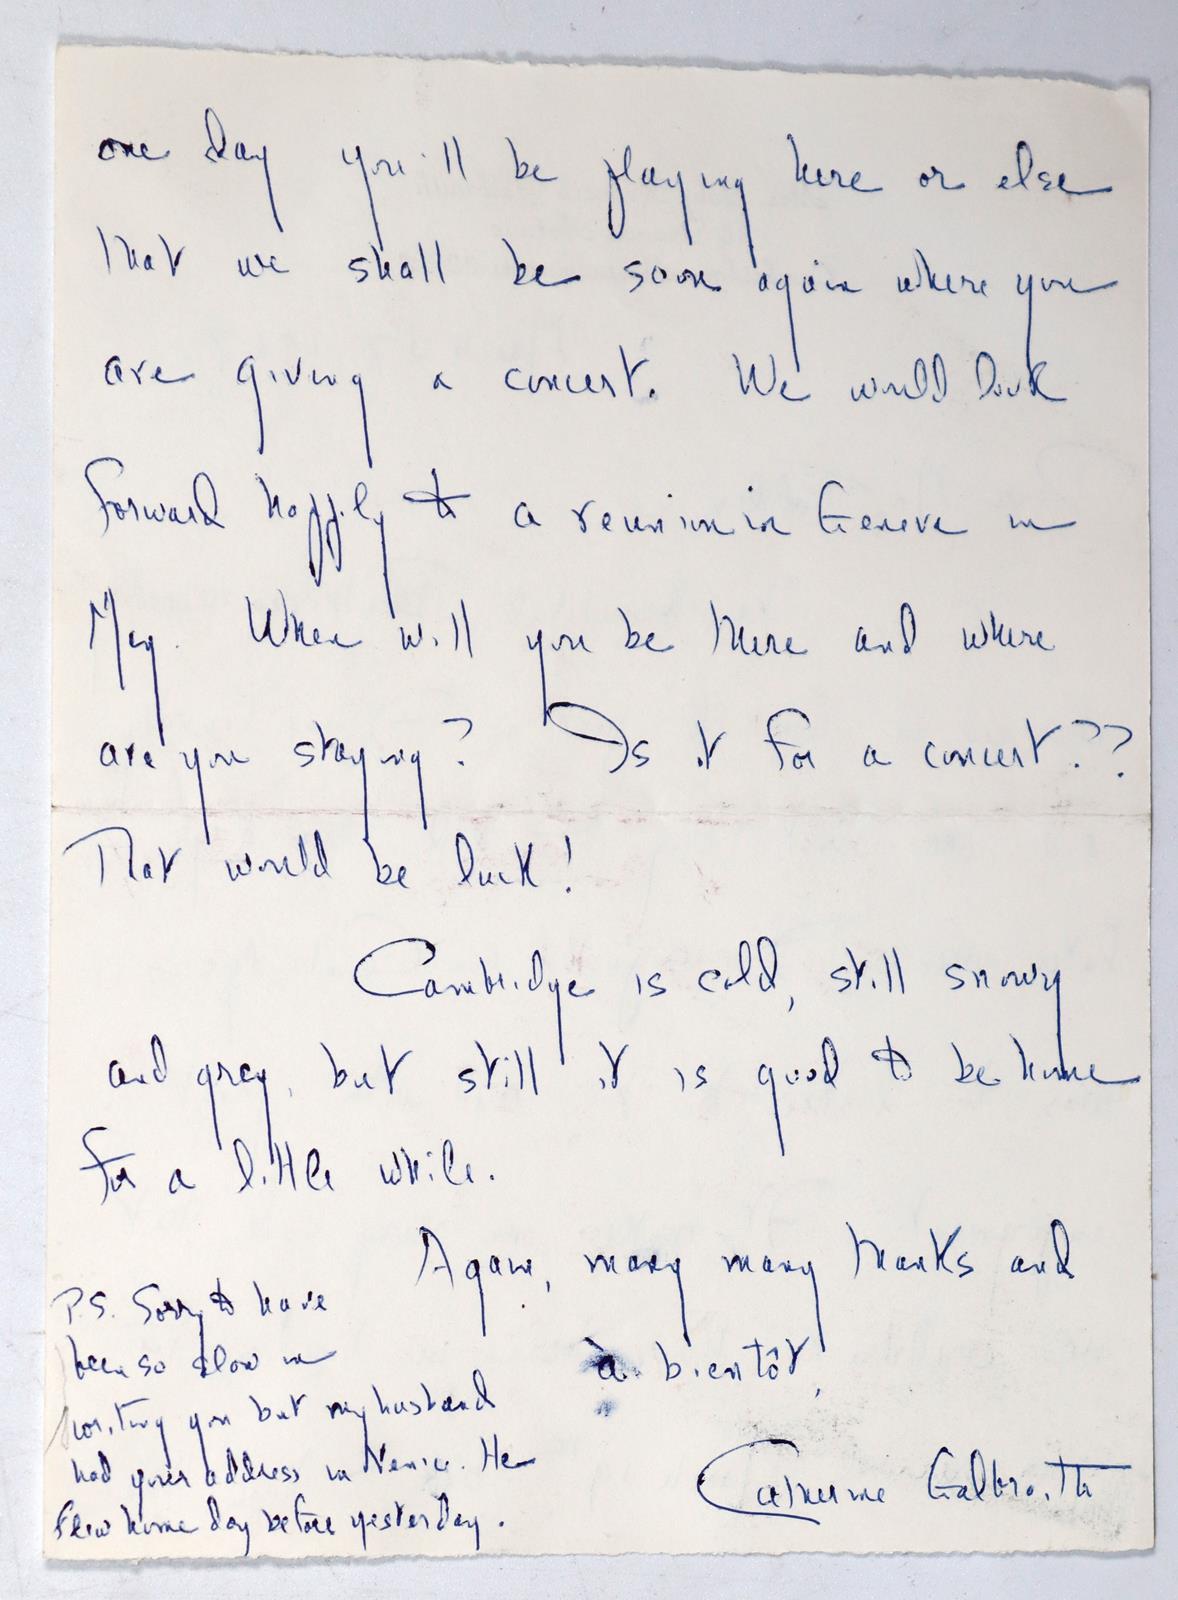 one day you'll be playing here or else
that we shall be soon again where you
are giving a concert. We would look
forward happily to a reunion in Geneve in
May. When will you be there and where
are you staying? Is it for a concert??
That would be luck!
Cambridge is cold, still snowy
and grey, but still it is good to be home
for a little while.
Again, many many thanks and
à bientôt,
Catherine Galbraith
P.S. Sorry to have
been so slow in
writing you but my husband
had your address in Venice. He
flew home day before yesterday.